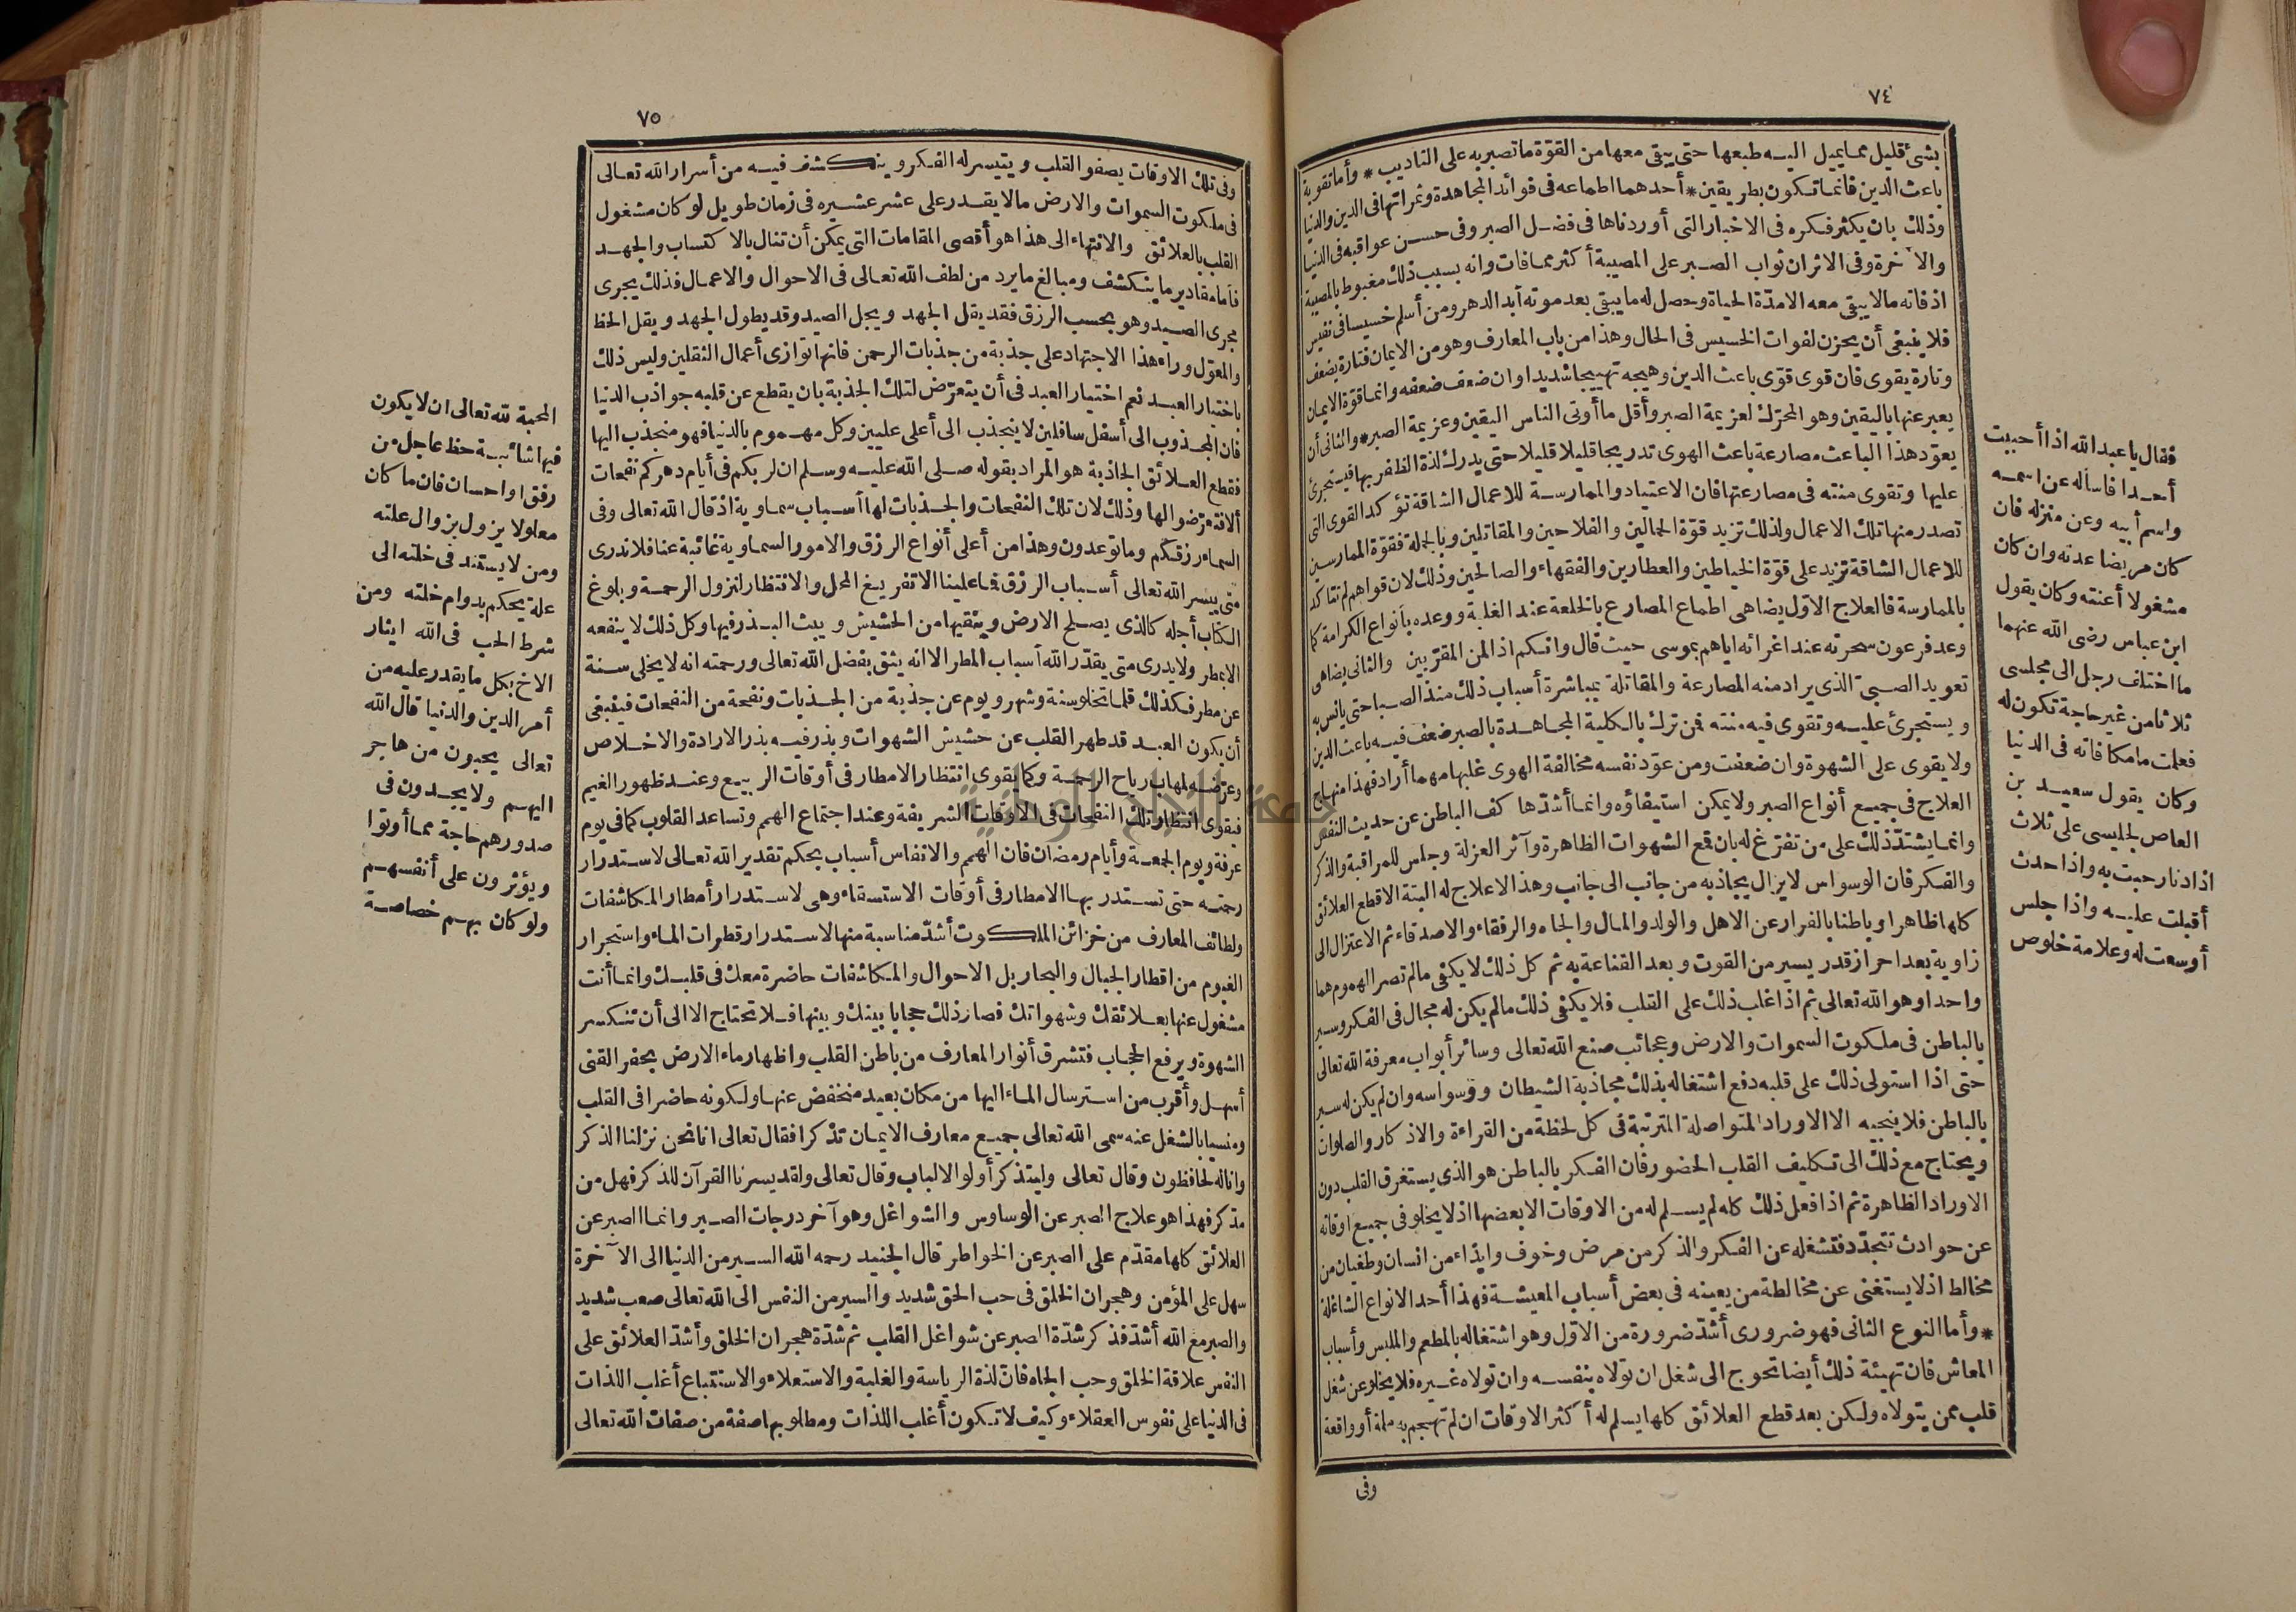 ٧٤
بشئ قليل مما يميل اليه طبعها حتى يبقى معها من القوّة ما تصبر به على التاديب * وأما تقوية
باعث الدين فانما تكون بطريقين * أحدهما اطماعه فى فوائد المجاهدة وثمراتها فى الدين والدنيا
وذلك بان يكثر فكره فى الاخبار التى أوردناها فى فضل الصبر وفى حسن عواقبه فى الدنيا
والآخرة وفى الاثر ان ثواب الصبر على المصيبة أكثر مما فات وانه بسبب ذلك مغبوط بالمصيبة
اذ فاته مالا يبقى معه الا مدّة الحياة وحصل له ما يبقى بعد موته أبد الدهر ومن أسلم خسيسا فى نفيس
فلا ينبغى أن يحزن لفوات الخسيس فى الحال وهذا من باب المعارف وهو من الايمان فتارة يضعف
وتارة يقوى فان قوى قوّى باعث الدين وهيجه تهييجا شديدا وان ضعف ضعفه وانما قوّة الايمان
يعبر عنها باليقين وهو المحرّك لعزيمة الصبر وأقل ما أوتى الناس اليقين وعزيمة الصبر * والثانى أن
يعوّد هذا الباعث مصارعة باعث الهوى تدريجا قليلا قليلا حتى يدرك لذة الظفر بها فيستجرئ
عليها وتقوى منته فى مصارعتها فان الاعتياد والممارسة للاعمال الشاقة تؤكد القوى التى
تصدر منها تلك الاعمال ولذلك تزيد قوّة الحمالين والفلاحين والمقاتلين وبالجملة فقوّة الممارسين
للاعمال الشاقة تزيد على قوّة الخياطين والعطارين والفقهاء والصالحين وذلك لان قواهم لم تتأكد
بالممارسة فالعلاج الاوّل يضاهى اطماع المصارع بالخلعة عند الغلبة ووعده بأنواع الكرامة كما
وعد فرعون سحرته عند اغرائه اياهم بموسى حيث قال وانكم اذا لمن المقرّبين والثانى يضاهى
تعويد الصبىّ الذى يراد منه المصارعة والمقاتلة بمباشرة أسباب ذلك منذ الصبا حتى يانس به
ويستجرئ عليه وتقوى فيه منته فمن ترك بالكلية المجاهدة بالصبر ضعف فيه باعث الدين
ولا يقوى على الشهوة وان ضعفت ومن عوّد نفسه مخالفة الهوى غلبها مهما أراد فهذا منهاج
العلاج فى جميع أنواع الصبر ولا يمكن استيفاؤه وانما أشدّها كف الباطن عن حديث النفس
وانما يشتدّ ذلك على من تفرّغ له بان قمع الشهوات الظاهرة وآثر العزلة وجلس للمراقبة والذكر
والفكر فان الوسواس لا يزال يجاذبه من جانب الى جانب وهذا لا علاج له البتة الا قطع العلائق
كلها ظاهرا وباطنا بالفرار عن الاهل والولد والمال والجاه والرفقاء والاصدقاء ثم الاعتزال الى
زاوية بعد احراز قدر يسير من القوت وبعد القناعة به ثم كل ذلك لا يكفى مالم تصر الهموم هما
واحدا وهو الله تعالى ثم اذا غلب ذلك على القلب فلا يكفى ذلك مالم يكن له مجال فى الفكر وسير
بالباطن فى ملكوت السموات والارض وعجائب صنع الله تعالى وسائر أبواب معرفة الله تعالى
حتى اذا استولى ذلك على قلبه دفع اشتغاله بذلك مجاذبة الشيطان ووسواسه وان لم يكن له سير
بالباطن فلا ينجيه الا الاوراد المتواصلة المترتبة فى كل لحظة من القراءة والاذكار والصلوات
ويحتاج مع ذلك الى تكليف القلب الحضور فان الفكر بالباطن هو الذى يستغرق القلب دون
الاوراد الظاهرة ثم اذا فعل ذلك كله لم يسلم له من الاوقات الا بعضها اذ لا يخلو فى جميع اوقاته
عن حوادث تتجدّد فتشغله عن الفكر والذكر من مرض وخوف وايذاء من انسان وطغيان من
مخالط اذ لا يستغنى عن مخالطة من يعينه فى بعض أسباب المعيشة فهذا أحد الانواع الشاغلة
* وأما النوع الثانى فهو ضرورى أشدّ ضرورة من الاوّل وهو اشتغاله بالمطعم والملبس وأسباب
المعاش فان تهيئة ذلك أيضا تحوج الى شغل ان تولاه بنفسه وان تولاه غيره فلا يخلو عن شغل
قلب بمن يتولاه ولكن بعد قطع العلائق كلها يسلم له أكثر الاوقات ان لم تهجم به ملمة أو واقعة
وفى
فقال يا عبد الله اذا أحببت
أحدا فاسأله عن اسمه
واسم أبيه وعن منزله فان
كان مريضا عدته وان كان
مشغولا أعنته وكان يقول
ابن عباس رضى الله عنهما
ما اختلف رجل الى مجلسى
ثلاثا من غير حاجة تكون له
فعلمت ما مكافاته فى الدنيا
وكان يقول سعيد بن
العاص لجليسى على ثلاث
اذا دنا رحبت به واذا حدث
أقبلت عليه واذا جلس
أوسعت له وعلامة خلوص
٧٥
وفى تلك الاوقات يصفو القلب ويتيسر له الفكر وينكشف فيه من أسرار الله تعالى
فى ملكوت السموات والارض مالا يقدر على عشر عشيره فى زمان طويل لو كان مشغول
القلب بالعلائق والانتهاء الى هذا هو أقصى المقامات التى يمكن أن تنال بالاكتساب والجهد
فأما مقادير ما ينكشف ومبالغ ما يرد من لطف الله تعالى فى الاحوال والاعمال فذلك يجرى
مجرى الصيد وهو بحسب الرزق فقد يقل الجهد ويجل الصيد وقد يطول الجهد ويقل الحظ
والمعوّل وراء هذا الاجتهاد على جذبة من جذبات الرحمن فانها توازى أعمال الثقلين وليس ذلك
باختيار العبد نعم اختيار العبد فى أن يتعرّض لتلك الجذبة بان يقطع عن قلبه جواذب الدنيا
فان المجذوب الى أسفل سافلين لا ينجذب الى أعلى عليين وكل مهموم بالدنيا فهو منجذب اليها
فقطع العلائق الجاذبة هو المراد بقوله صلى الله عليه وسلم ان لربكم فى أيام دهركم نفحات
ألا فتعرّضوا لها وذلك لان تلك النفحات والجذبات لها أسباب سماوية اذ قال الله تعالى وفى
السماء رزقكم وما توعدون وهذا من أعلى أنواع الرزق والامور السماوية غائبة عنا فلا ندرى
متى ييسر الله تعالى أسباب الرزق فما علينا الا تفريغ المحل والانتظار لنزول الرحمة وبلوغ
الكتاب أجله كالذى يصلح الارض وينقيها من الحشيش ويبث البذر فيها وكل ذلك لا ينفعه
الا بمطر ولا يدرى متى يقدّر الله أسباب المطر الا انه يثق بفضل الله تعالى ورحمته انه لا يخلى سنة
عن مطر فكذلك قلما تخلو سنة وشهر ويوم عن جذبة من الجذبات ونفحة من النفحات فينبغى
أن يكون العبد قد طهر القلب عن حشيش الشهوات وبذر فيه بذر الارادة والاخلاص
وعرّضه لمهاب رياح الرحمة وكما يقوى انتظار الامطار فى أوقات الربيع وعند ظهور الغيم
فيقوى انتظار تلك النفحات فى الاوقات الشريفة وعند اجتماع الهمم وتساعد القلوب كما فى يوم
عرفة ويوم الجمعة وأيام رمضان فان الهمم والانفاس أسباب بحكم تقدير الله تعالى لاستدرار
رحمته حتى تستدر بها الامطار فى أوقات الاستسقاء وهى لاستدرار أمطار المكاشفات
ولطائف المعارف من خزائن الملكوت أشدّ مناسبة منها لاستدرار قطرات الماء واستجرار
الغيوم من اقطار الجبال والبحار بل الاحوال والمكاشفات حاضرة معك فى قلبك وانما أنت
مشغول عنها بعلائقك وشهواتك فصار ذلك حجابا بينك وبينها فلا تحتاج الا الى أن تنكسر
الشهوة ويرفع الحجاب فتشرق أنوار المعارف من باطن القلب واظهار ماء الارض بحفر القنى
أسهل وأقرب من استرسال الماء اليها من مكان بعيد منخفض عنها ولكونه حاضرا فى القلب
ومنسيا بالشغل عنه سمى الله تعالى جميع معارف الايمان تذكرا فقال تعالى انا نحن نزلنا الذكر
وانا له لحافظون وقال تعالى وليتذكر أولو الالباب وقال تعالى ولقد يسرنا القرآن للذكر فهل من
مدكر فهذا هو علاج الصبر عن الوساوس والشواغل وهو آخر درجات الصبر وانما الصبر عن
العلائق كلها مقدّم على الصبر عن الخواطر قال الجنيد رحمه الله السير من الدنيا الى الآخرة
سهل على المؤمن وهجران الخلق فى حب الحق شديد والسير من النفس الى الله تعالى صعب شديد
والصبر مع الله أشدّ فذكر شدّة الصبر عن شواغل القلب ثم شدّة هجران الخلق وأشدّ العلائق على
النفس علاقة الخلق وحب الجاه فان لذة الرياسة والغلبة والاستعلاء والاستتباع أغلب اللذات
فى الدنيا على نفوس العقلاء وكيف لا تكون أغلب اللذات ومطلوبها صفة من صفات الله تعالى
المحبة لله تعالى ان لا يكون
فيها شائبة حظ عاجل من
رفق او احسان فان ما كان
معلولا يزول بزوال علته
ومن لا يستند فى خلته الى
علة يحكم بدوام خلته ومن
شرط الحب فى الله ايثار
الاخ بكل ما يقدر عليه من
أمر الدين والدنيا قال الله
تعالى يحبون من هاجر
اليهم ولا يجدون فى
صدورهم حاجة مما أوتوا
ويؤثرون على أنفسهم
ولو كان بهم خصاصة
جامعة النجاح الوطنية